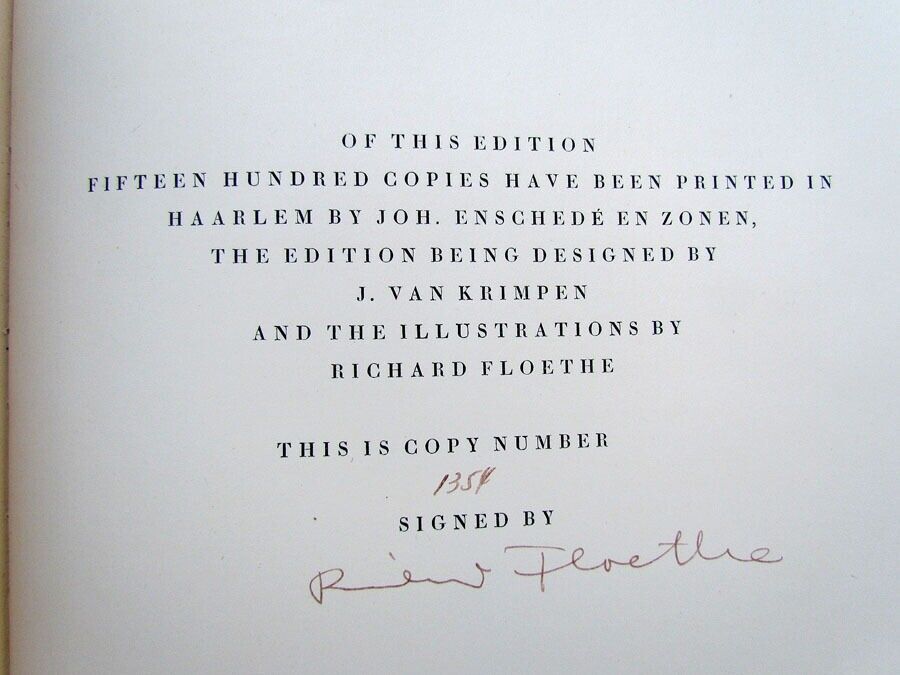 OF THIS EDITION
FIFTEEN HUNDRED COPIES HAVE BEEN PRINTED IN
HAARLEM BY JOH. ENSCHEDÉ EN ZONEN,
THE EDITION BEING DESIGNED BY
J. VAN KRIMPEN
AND THE ILLUSTRATIONS BY
RICHARD FLOETHE
THIS IS COPY NUMBER
1354
SIGNED BY
Richard Floethe